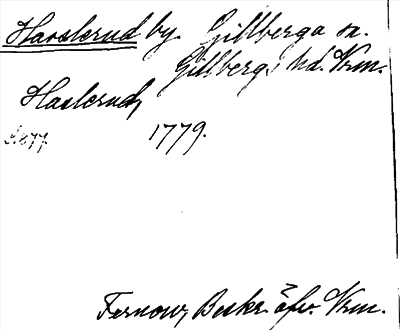 Harslerud by. Gillberga sn.
Gillbergs hd. Vrm.
Haslerud,
1779.
Fernow, Beskr. öfv. Vrm.